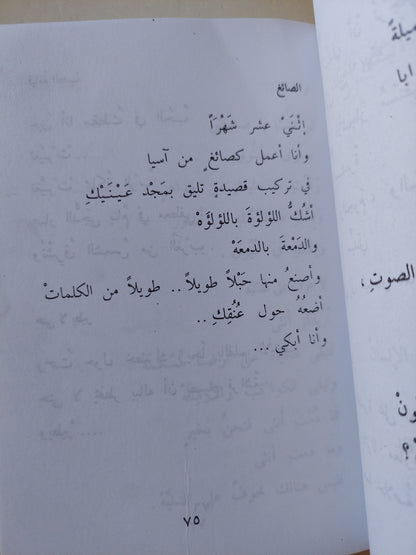 ميلةً
ابا
الصوتِ ،
ونْ
؟
الصائغ
إثْنَيْ عشر شَهْرَاً
وأنا أعمل كصائغٍ من آسيا
في تركيب قصيدةٍ تليق بمَجْد عَيْنَيْكِ
أشُكُّ اللؤلؤةَ باللؤلؤَهْ
والدَمْعَةَ بالدمعَهْ
وأصنعُ منها حَبْلاً طويلاً .. طويلاً من الكلماتْ
أضعُهُ حول عُنُقِكِ ..
وأنا أبكي ...
٧٥